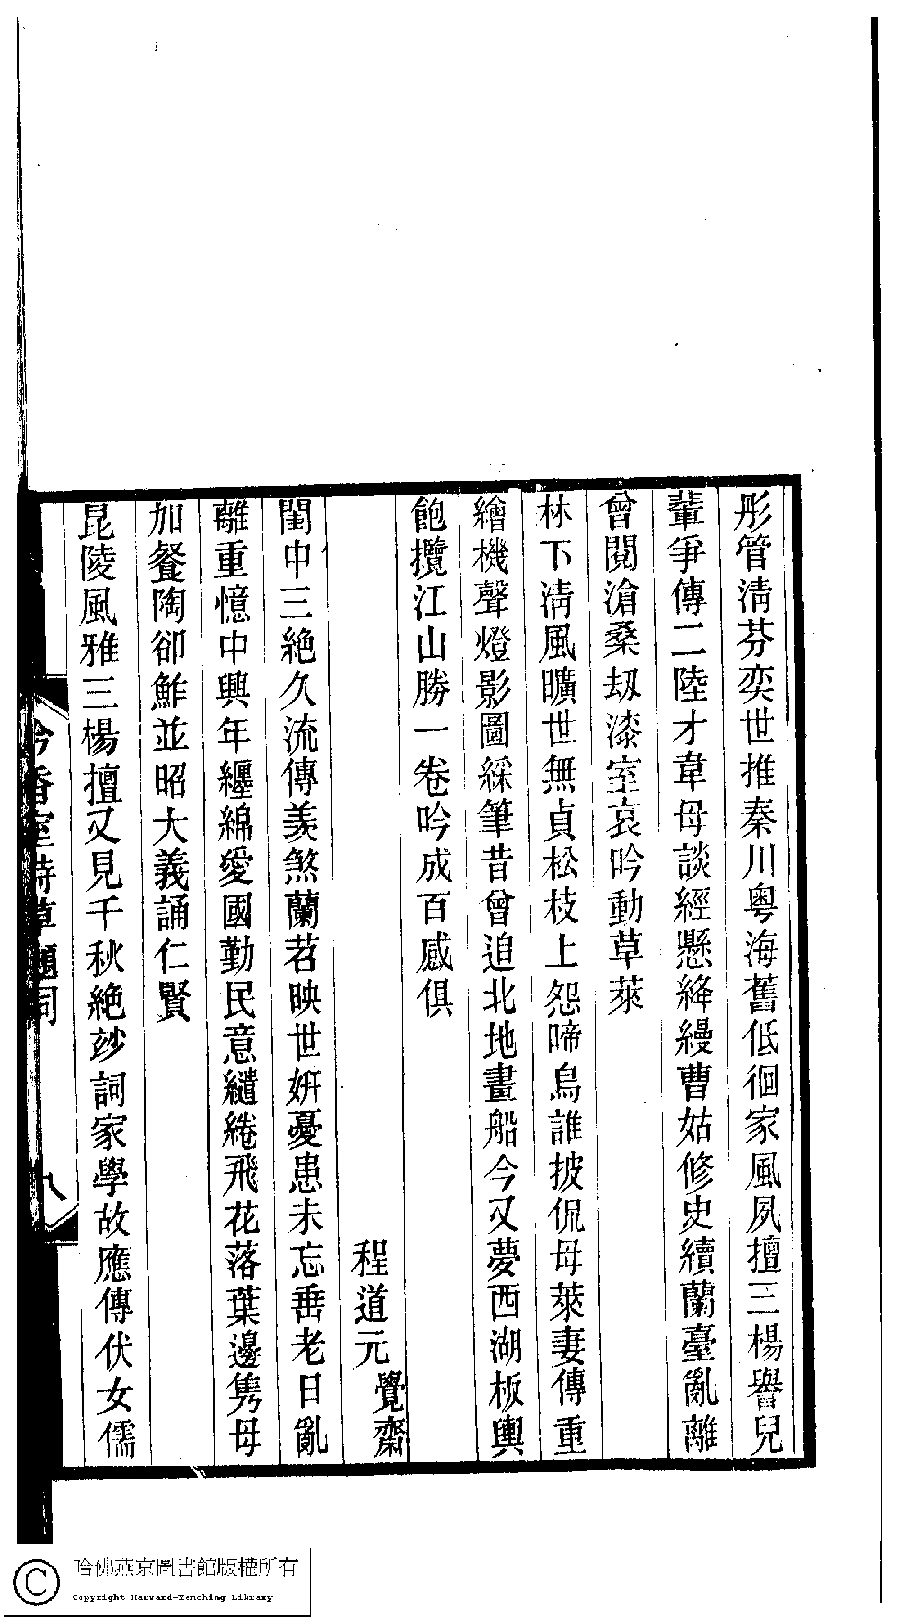 彤管淸芬奕世推秦川粵海舊低徊家風夙擅三楊譽兒
輩爭傳二陸才韋母談經懸絳縵曹姑修史續蘭臺亂離
曾閱滄桑刼漆室哀吟動草萊
林下淸風曠世無貞松枝上怨啼烏誰披侃母萊妻傳重
繪機聲燈影圖綵筆昔曾迫北地畫船今又夢西湖板輿
飽攬江山勝一卷吟成百感俱
程道元 覺齋
閨中三絶久流傳羡煞蘭苕映世妍憂患未忘垂老日亂
離重憶中興年纏綿愛國勤民意繾綣飛花落葉邊雋母
加餐陶卻鮓並昭大義誦仁賢
昆陵風雅三楊擅又見千秋絶玅詞家學故應傳伏女儒
吟香室詩草題詞
九
哈佛燕京圖書館版權所有
Copyright Harvard-Yenching Library